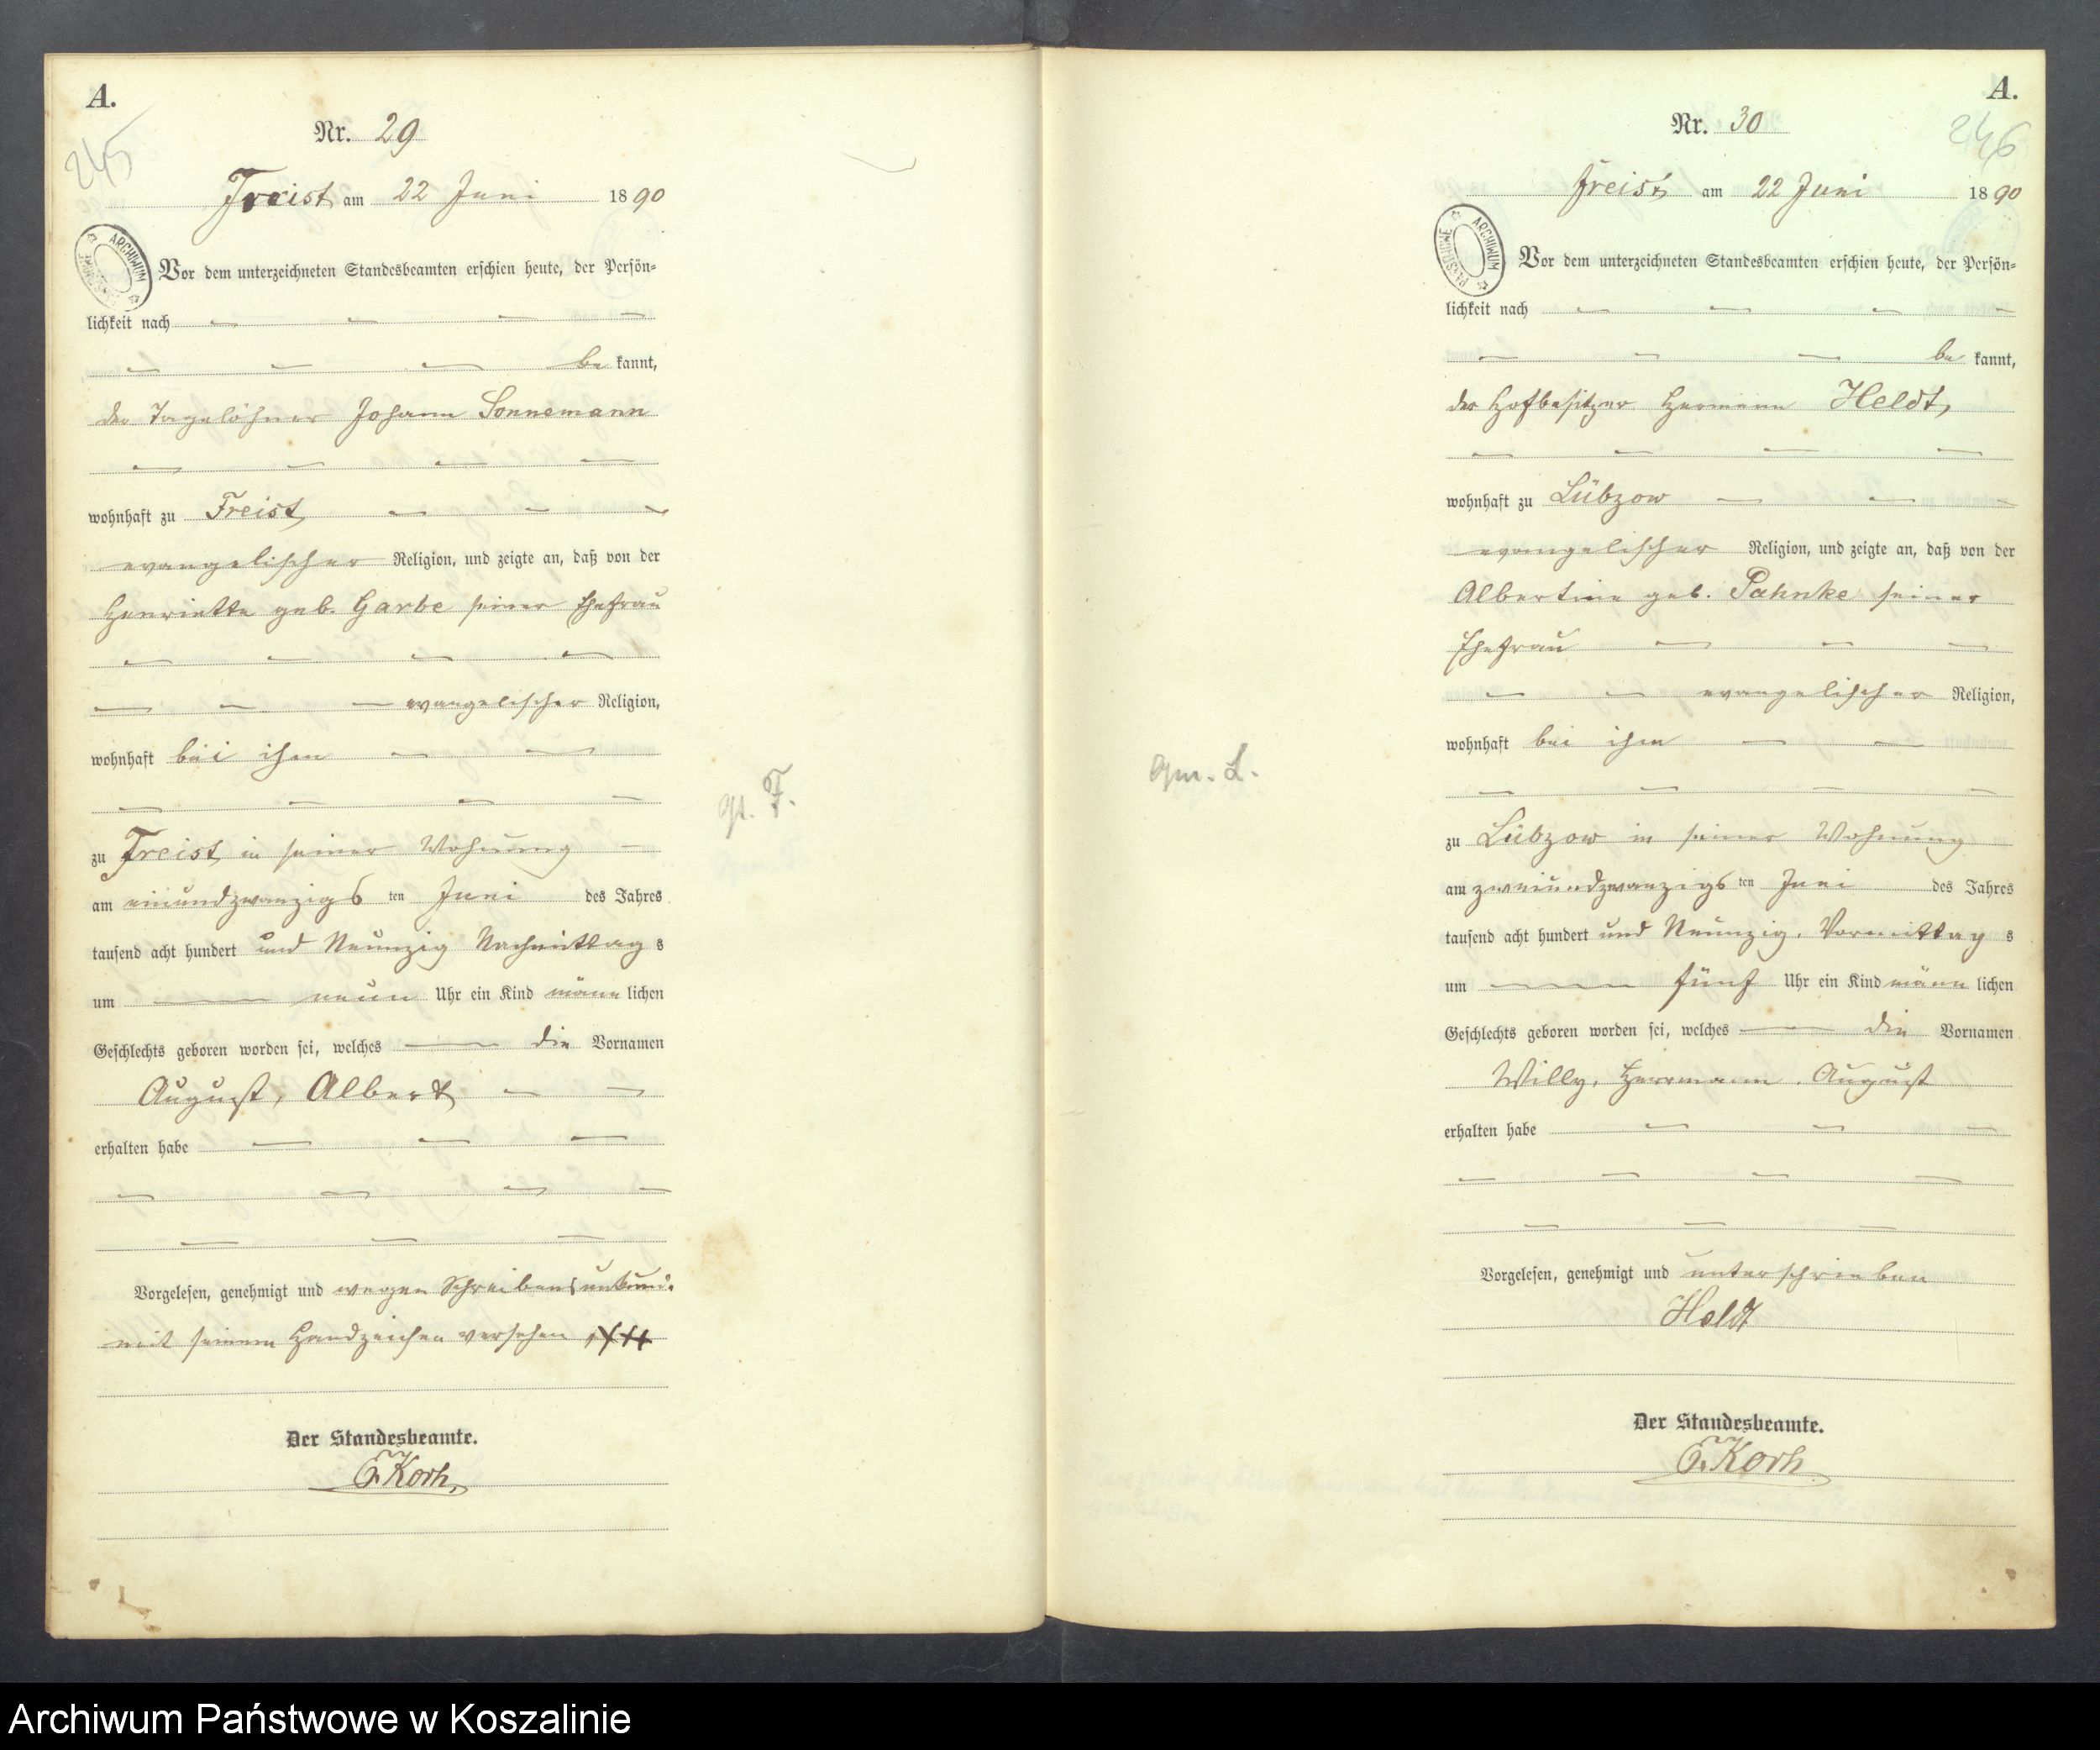 A.
245
Nr. 29
Freist am 22 Juni 1890
ARCHIWUM
Vor dem unterzeichneten Standesbeamten erschien heute, der Persön=
lichkeit nach
be kannt,
der Tagelöhner Johann Sonnemann
wohnhaft zu Freist
evangelischer Religion, und zeigte an, daß von der
Henriette geb. Garbe seiner Ehefrau
evangelischer Religion,
wohnhaft bei ihm
zu Freist in seiner Wohnung
am einundzwanzigs ten Juni des Jahres
tausend acht hundert und Neunzig Nachmittag s
um neun Uhr ein Kind männ lichen
Geschlechts geboren worden sei, welches die Vornamen
August, Albert
erhalten habe
Vorgelesen, genehmigt und wegen Schreibensunkund.
mit seinem Handzeichen versehen, +++
Der Standesbeamte.
Korh
F.
A.
246
Nr. 30
Freist am 22 Juni 1890
ARCHIWUM PAŃSTWOWE
Vor dem unterzeichneten Standesbeamten erschien heute, der Persön=
lichkeit nach
be kannt,
der Hofbesitzer Hermann Heldt,
wohnhaft zu Lübzow
evangelischer Religion, und zeigte an, daß von der
Albertine geb. Pahnke seiner
Ehefrau
evangelischer Religion,
wohnhaft bei ihm
zu Lübzow in seiner Wohnung
am zweiundzwanzigs ten Juni des Jahres
tausend acht hundert und Neunzig, Vormittag s
um fünf Uhr ein Kind männ lichen
Geschlechts geboren worden sei, welches die Vornamen
Willy, Herrmann, August
erhalten habe
Vorgelesen, genehmigt und unterschrieben
Heldt
Der Standesbeamte.
Korh
L.
Archiwum Państwowe w Koszalinie